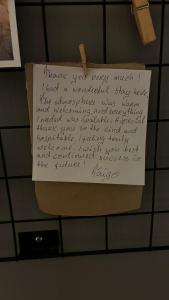 Thank you very much!
I had a wonderful stay here.
The atmosphere was warm
and welcoming, and everything
I needed was available. A special
thank you to the kind and
hospitable, I feeling truly
welcome. I wish you best
and continued success in
the future!